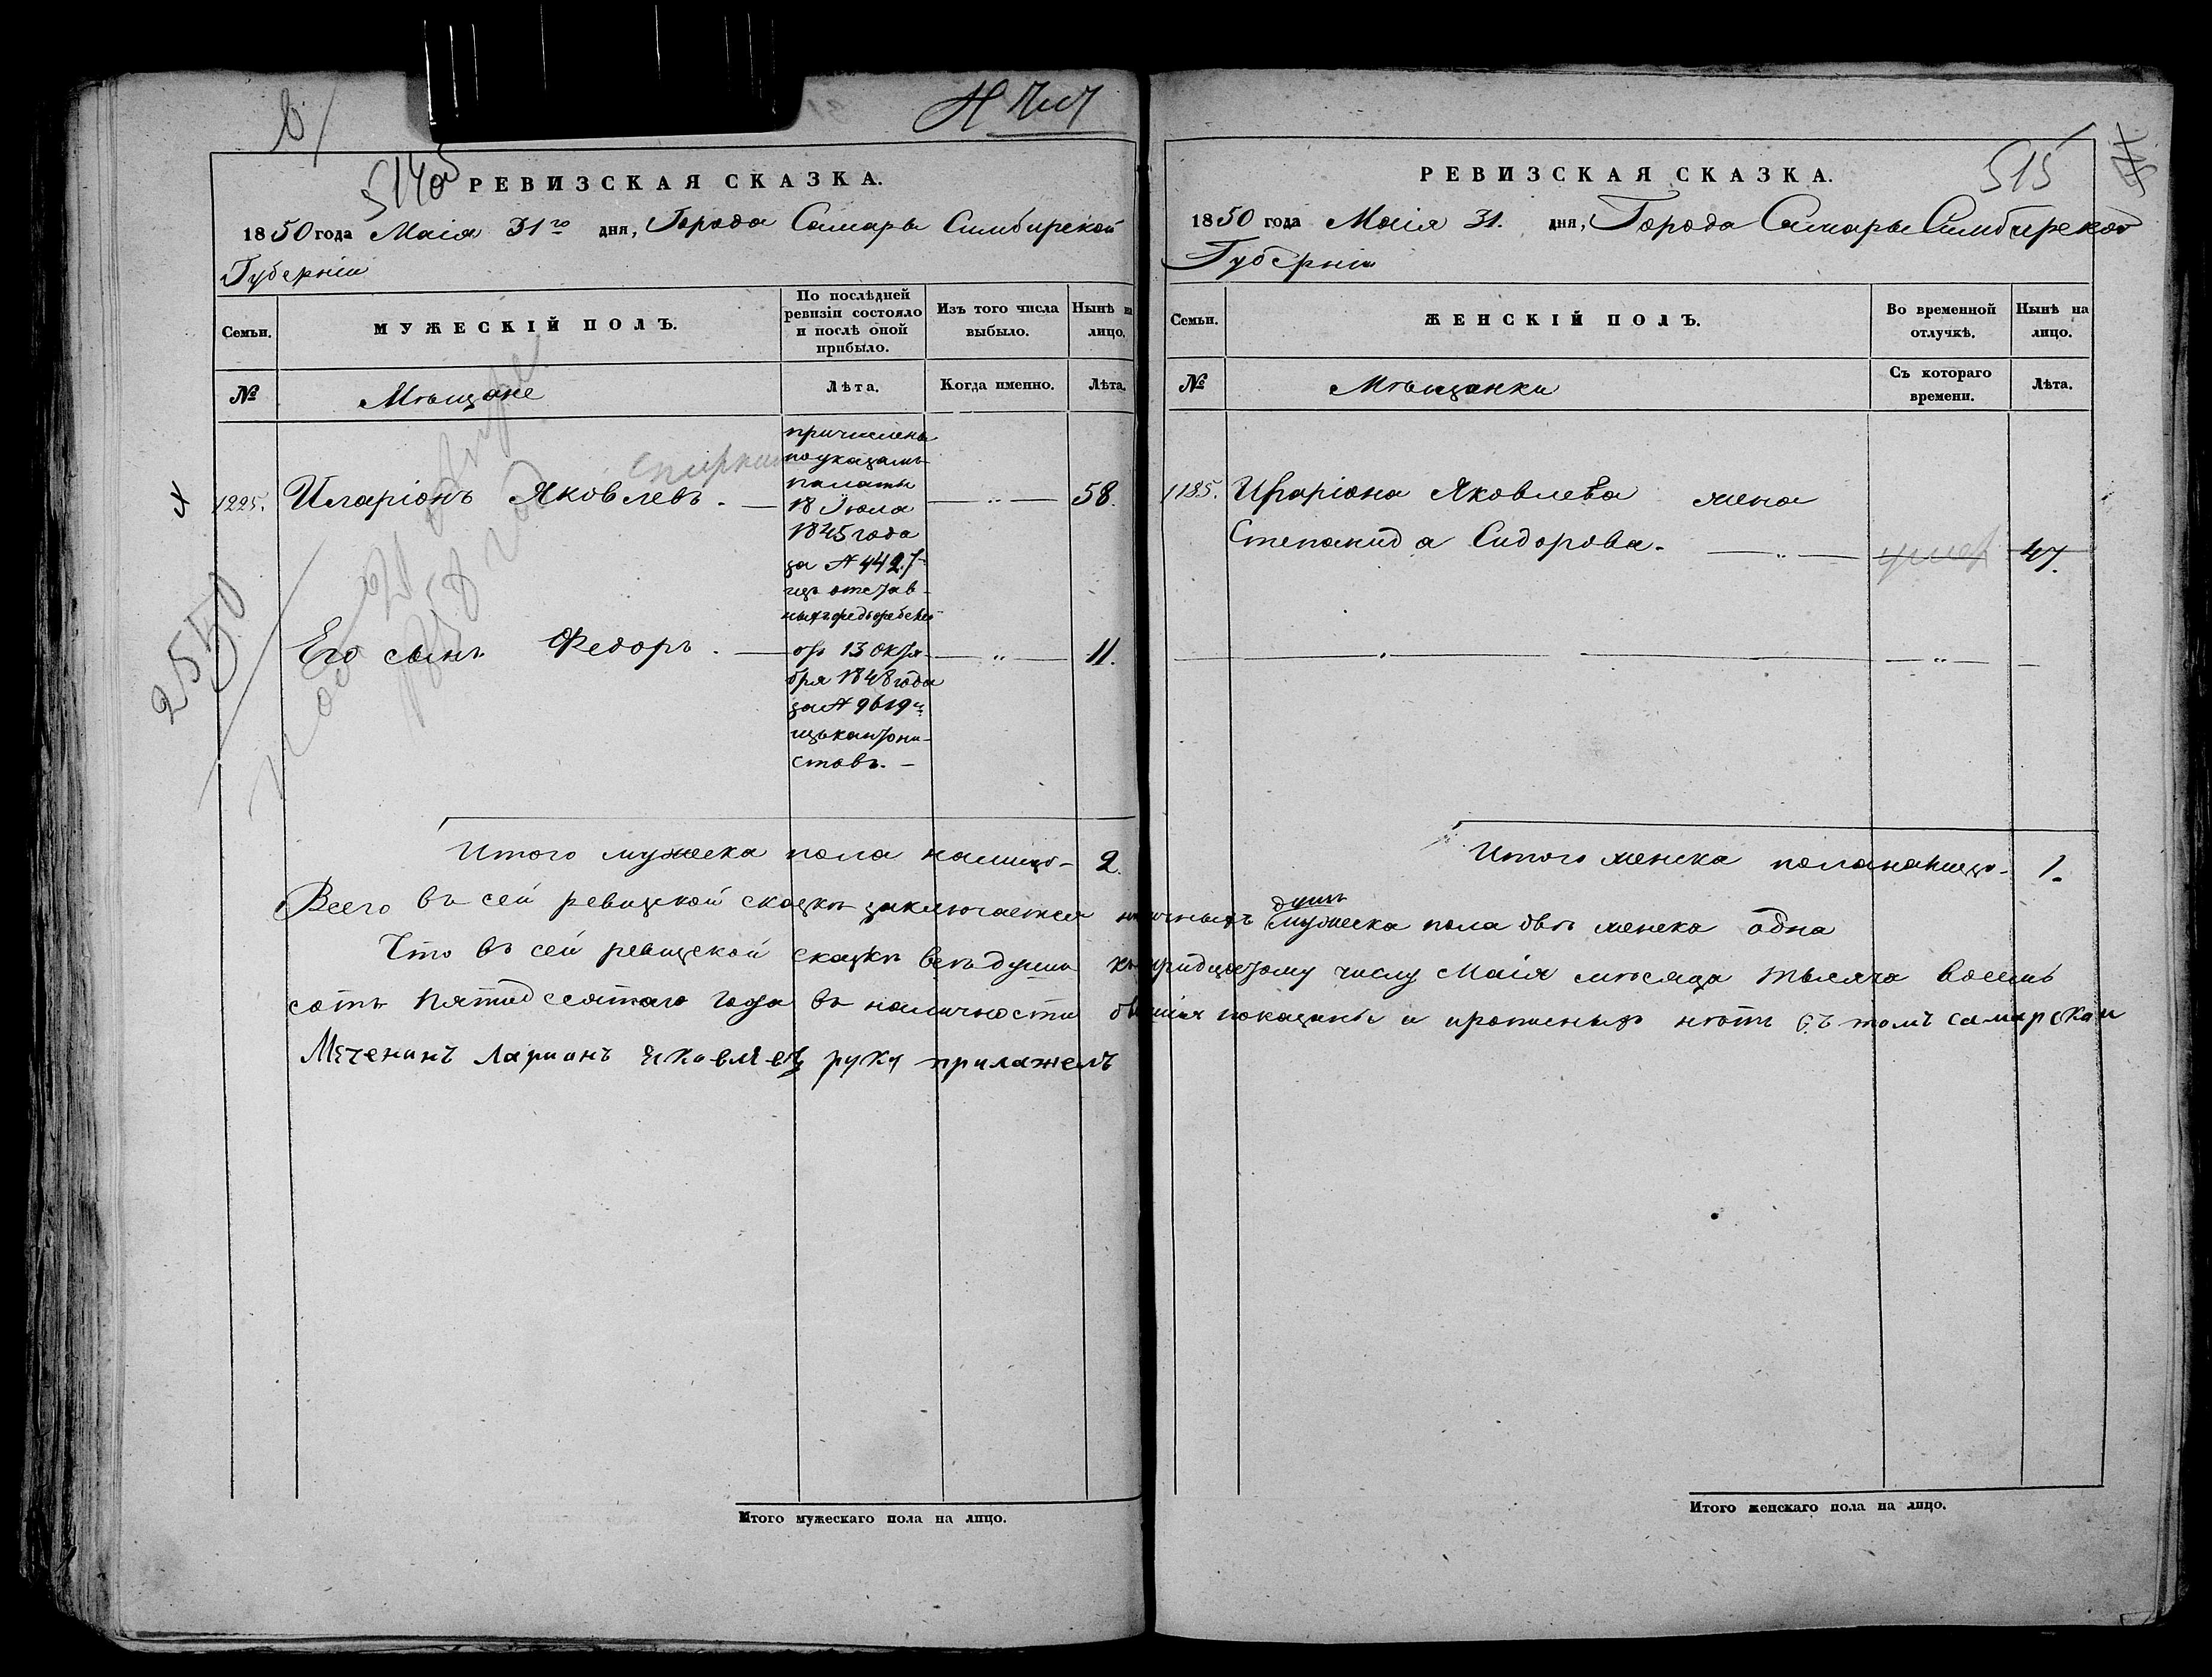 514об
РЕВИЗСКАЯ СКАЗКА.
1850 года Маія 31го дня, Города Самары Симбирской
Губерніи
Семьи.
МУЖЕСКІЙ ПОЛЪ.
По послѣдней
ревизіи состояло
и послѣ оной
прибыло.
Изъ того числа
выбыло.
Нынѣ на
лицо.
№
Мѣщане
Лѣта.
Когда именно.
Лѣта.
1225. Иларіонъ Яковлевъ. 58.
причислены
по указамъ
палаты
18 Іюля
1845 года
за №
изъ отстав
ныхъ
2550
Его сынъ Федоръ. 11.
отъ 13 Октя
бря 1848 года
за № 9619
изъ кантони
стовъ.
Итого мужеска пола налицо 2.
РЕВИЗСКАЯ СКАЗКА.
515
1850 года Маія 31. дня, Города Самары Симбирской
Губерніи
Семьи.
ЖЕНСКІЙ ПОЛЪ.
Во временной
отлучкѣ.
Нынѣ на
лицо.
№
Мѣщанки
Съ котораго
времени.
Лѣта.
1185. Иларіона Яковлева жена
Степанида Сидорова. 47.
Итого женска пола налицо 1.
Всего въ сей ревизкой сказкѣ заключается наличныхъ душъ мужеска пола двѣ женска одна
Что въ сей ревизской сказкѣ всѣ души къ тридцатому числу Маія мѣсяца тысяча восемь
сотъ пятидесятаго года въ наличности бывшія показаны и прописныхъ нѣтъ въ томъ самарскаи
Мѣченинъ Ларионъ Яковлевъ руку прилажелъ
Итого мужескаго пола на лицо.
Итого женскаго пола на лицо.